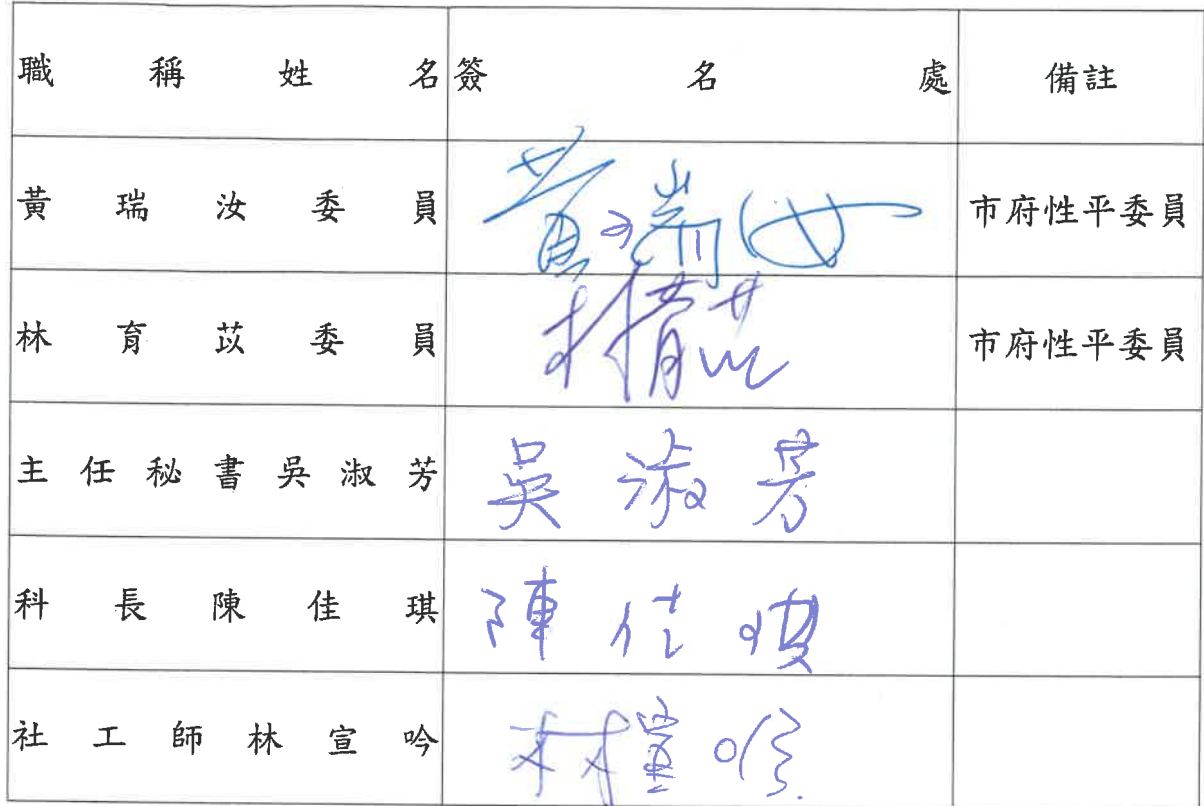 職稱姓名 簽名處 備註
黃瑞汝委員 黃瑞汝 市府性平委員
林育苡委員 林育苡 市府性平委員
主任秘書吳淑芳 吳淑芳
科長陳佳琪 陳佳琪
社工師林宣吟 林宣吟